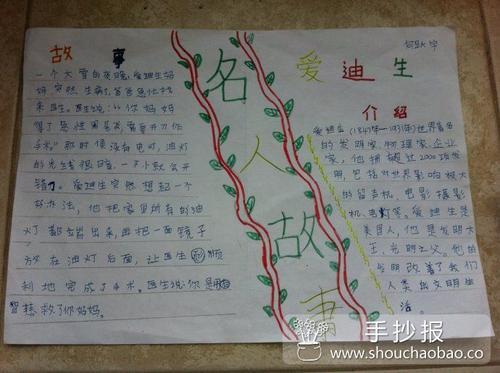 故事
一个大雪的夜晚,爱迪生妈
妈突然生病了,爸爸急忙找
来医生。医生说:"你妈妈
得了急性阑尾炎,需要开刀作
手术"那时候没有电灯,油灯
的光线很暗,一不小心就会开
错了。爱迪生突然想起一个
好办法,他把家里所有的油
灯都端出来,再把一面镜子
放在油灯后面,让医生顺
利地完成了手术。医生说:你是用
智慧救了你妈妈。
名人故事
爱迪生
介绍
爱迪生(1847年—1931年)世界著名
的发明家、物理家、企业
家,他拥超过2000项发
明,包括对世界影响极大
的留声机,电影摄影
机,电灯等。爱迪生是
美国人,他是发明大
王,光明之父。他的
发明改善了我们
人类的文明生
活。
手抄报
www.shouchaobao.cc